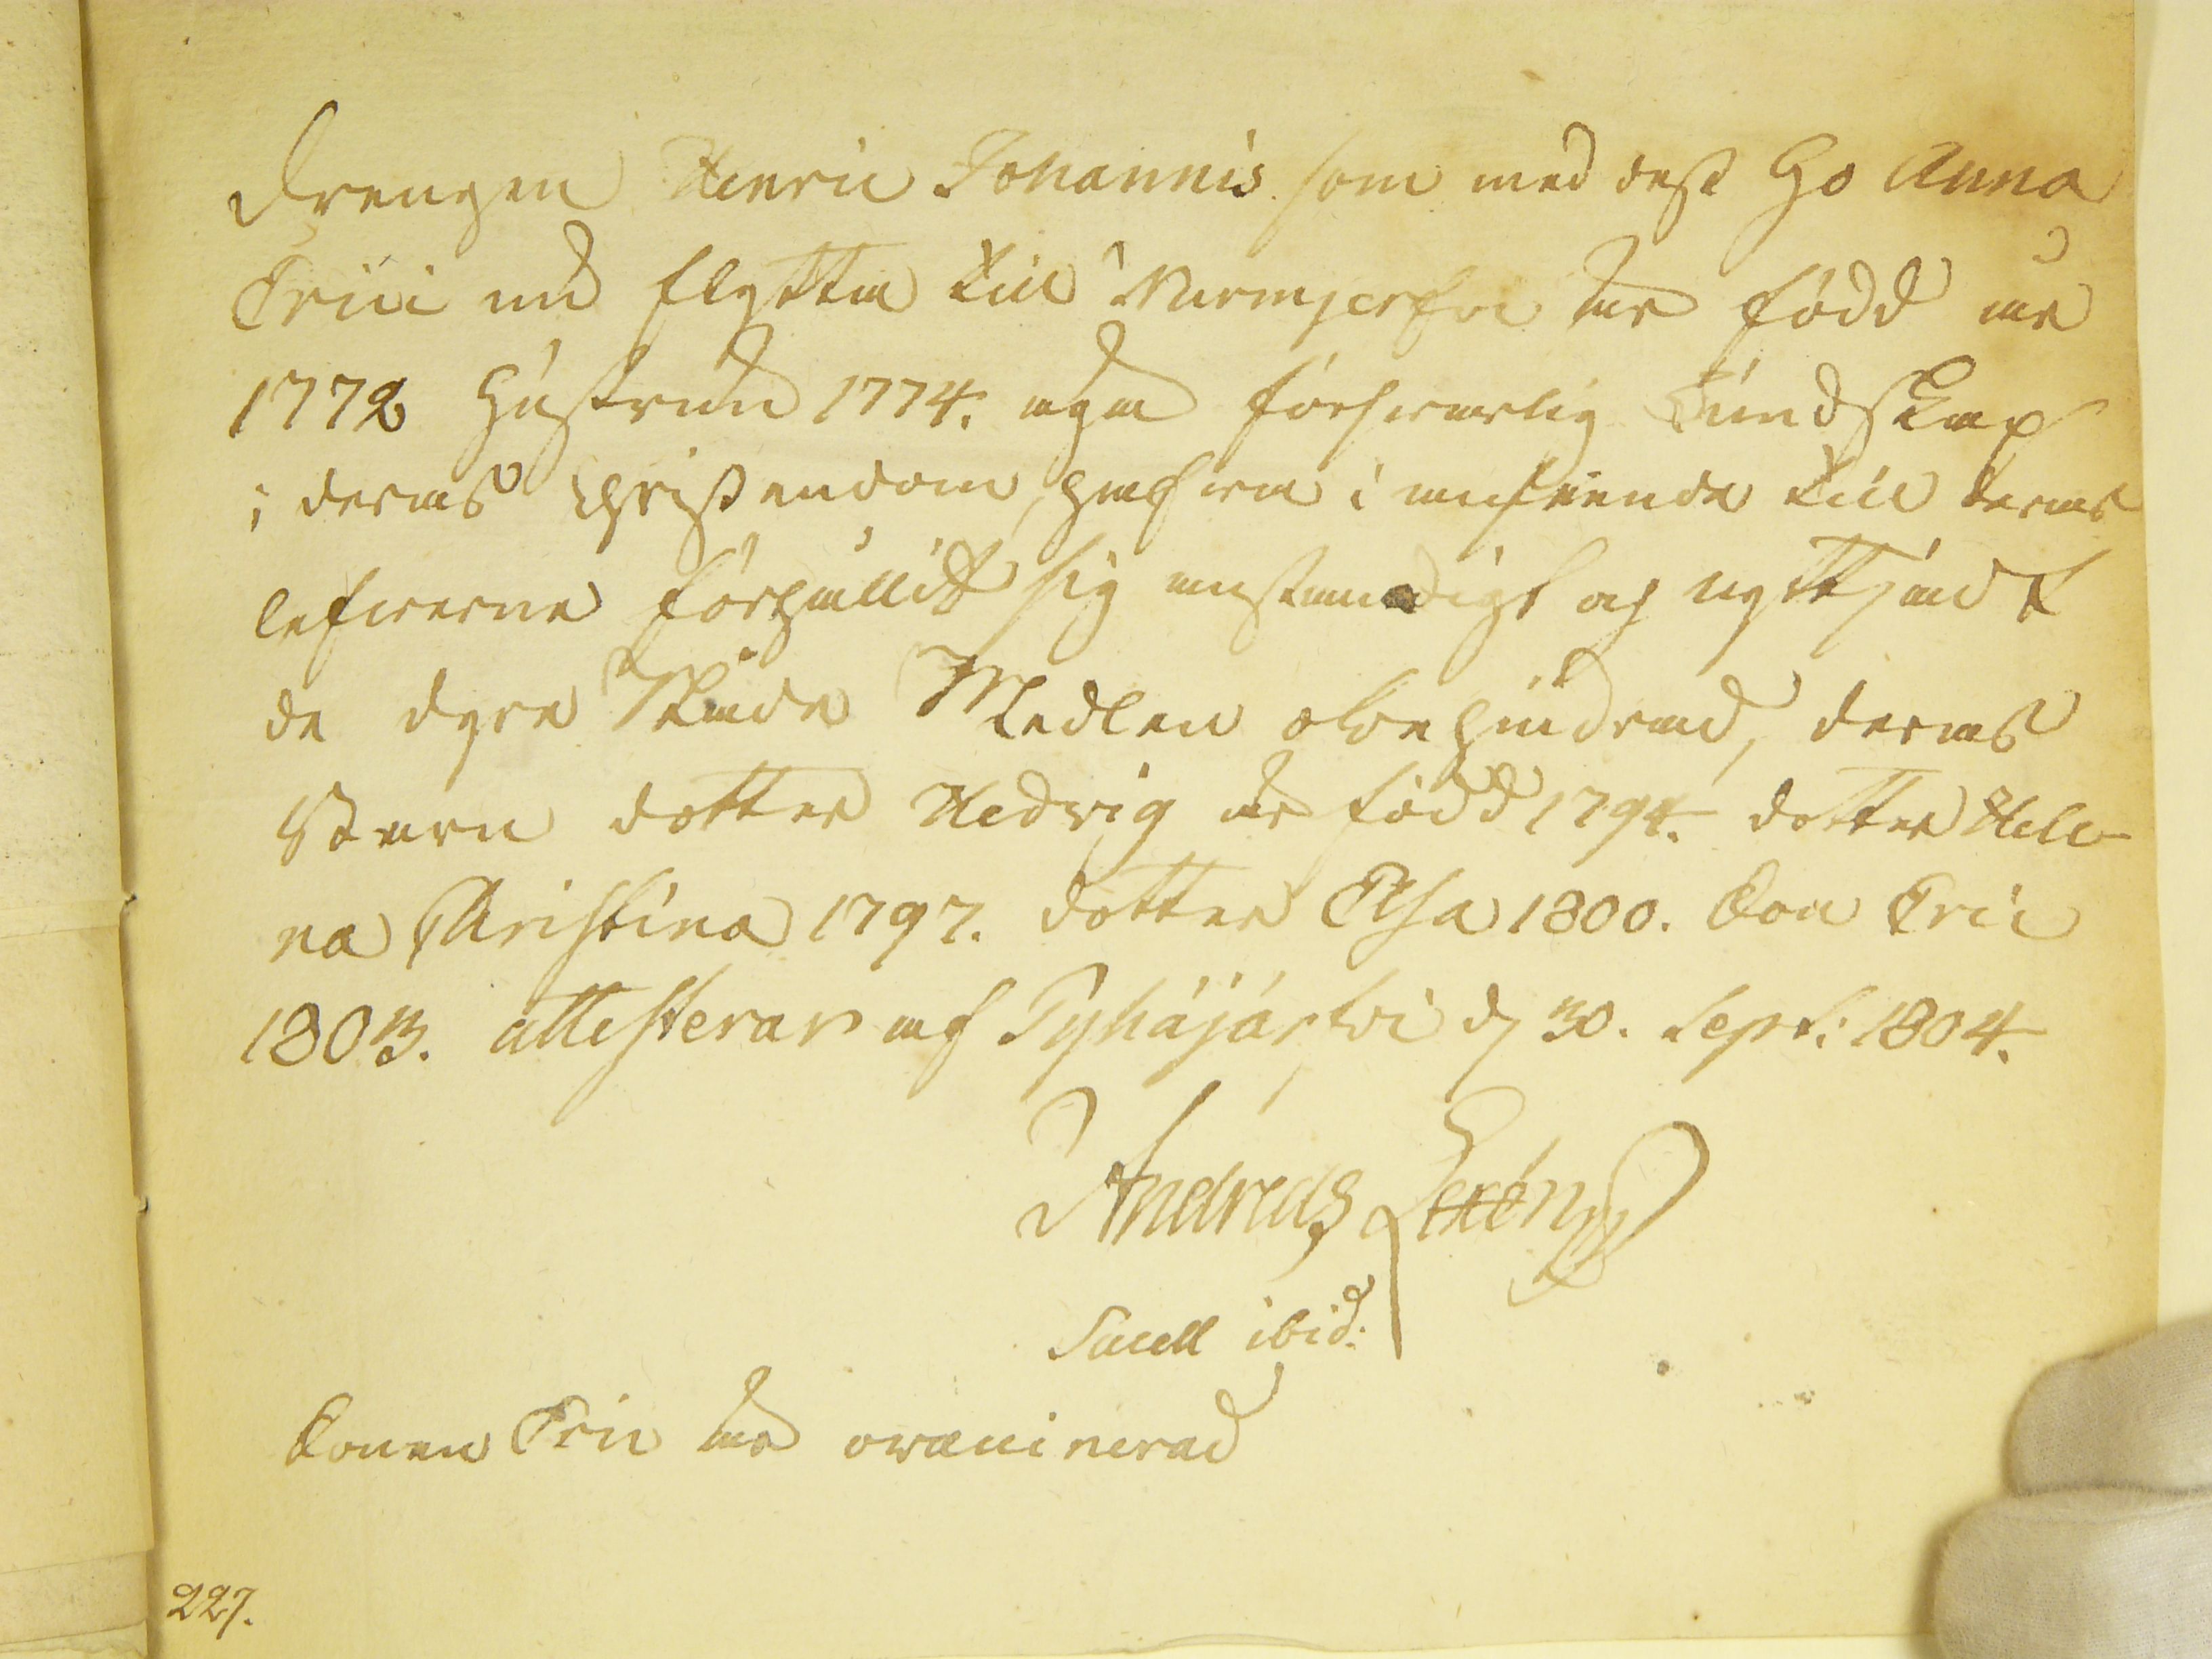 Drengen Henric Johannis som med dess Ho Anna
Erici nu flyttar till Nurmijerfvi är född år
1772 Hustrun 1774. ega försvarlig Kundskap
i deras Christendom, hafva i anseende till deras
lefverne förhållit sig anständigt och nyttjadt
de dyre Nåde Medlen obehindrad, deras
Barn dotter Hedvig är född 1794. dotter Hele-
na Christina 1797. dotter Elsa 1800. Son Eric
1803. attesterar af Pyhäjärvi d 30. Sept: 1804.
Andreas Lexén
Sacell ibid:
Sonen Eric är vaccinerad
227.